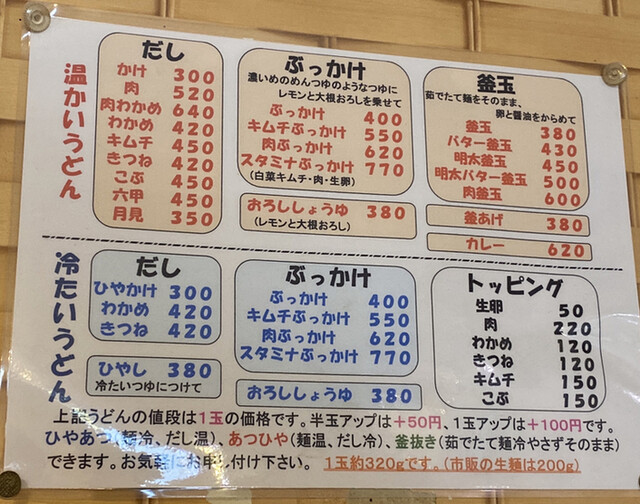 温かいうどん
だし
かけ 300
肉 520
肉わかめ 640
わかめ 420
キムチ 450
きつね 420
こぶ 450
六甲 450
月見 350
ぶっかけ
濃いめのめんつゆのようなつゆに
レモンと大根おろしを乗せて
ぶっかけ 400
キムチぶっかけ 550
肉ぶっかけ 620
スタミナぶっかけ 770
(白菜キムチ・肉・生卵)
おろししょうゆ 380
(レモンと大根おろし)
釜玉
茹でたて麺をそのまま、
卵と醤油をからめて
釜玉 380
バター釜玉 430
明太釜玉 450
明太バター釜玉 500
肉釜玉 600
釜あげ 380
カレー 620
冷たいうどん
だし
ひやかけ 300
わかめ 420
きつね 420
ひやし 380
冷たいつゆにつけて
ぶっかけ
ぶっかけ 400
キムチぶっかけ 550
肉ぶっかけ 620
スタミナぶっかけ 770
おろししょうゆ 380
トッピング
生卵 50
肉 220
わかめ 120
きつね 120
キムチ 150
こぶ 150
上記うどんの値段は1玉の価格です。半玉アップは+50円、1玉アップは+100円です。
ひやあつ(麺冷、だし温)、あつひや(麺温、だし冷)、釜抜き(茹でたて麺冷やさずそのまま)
できます。お気軽にお申し付け下さい。 1玉約320gです。(市販の生麺は200g)